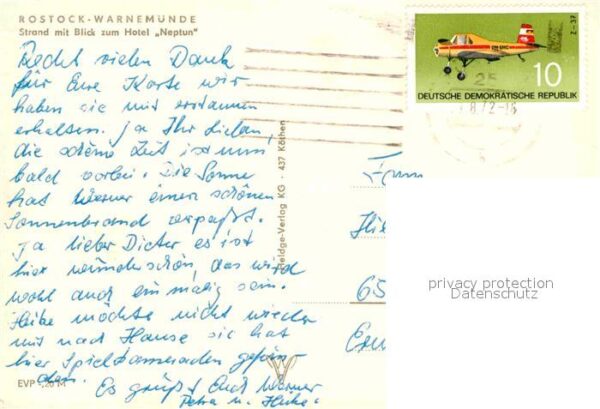 ROSTOCK-WARNEMÜNDE
Strand mit Blick zum Hotel „Neptun"
Recht vielen Dank
für Eure Karte wir
haben sie mit erstaunen
erhalten. Ja Ihr Lieben
die schöne Zeit ist nun
bald vorbei. Die Sonne
hat Werner einen schönen
Sonnenbrand verpaßt.
Ja lieber Dieter es ist
hier wunderschön, das wird
wohl auch einmalig sein.
Heike möchte nicht wieder
mit nach Hause sie hat
hier Spielkameraden gefun
den.
Es grüßt Euch Werner
Petra u. Heike.
EVP -,20 M
Verlag KG · 437 Köthen
Z-37
10
DEUTSCHE DEMOKRATISCHE REPUBLIK
25
8.72-16
Fam
65
privacy protection
Datenschutz